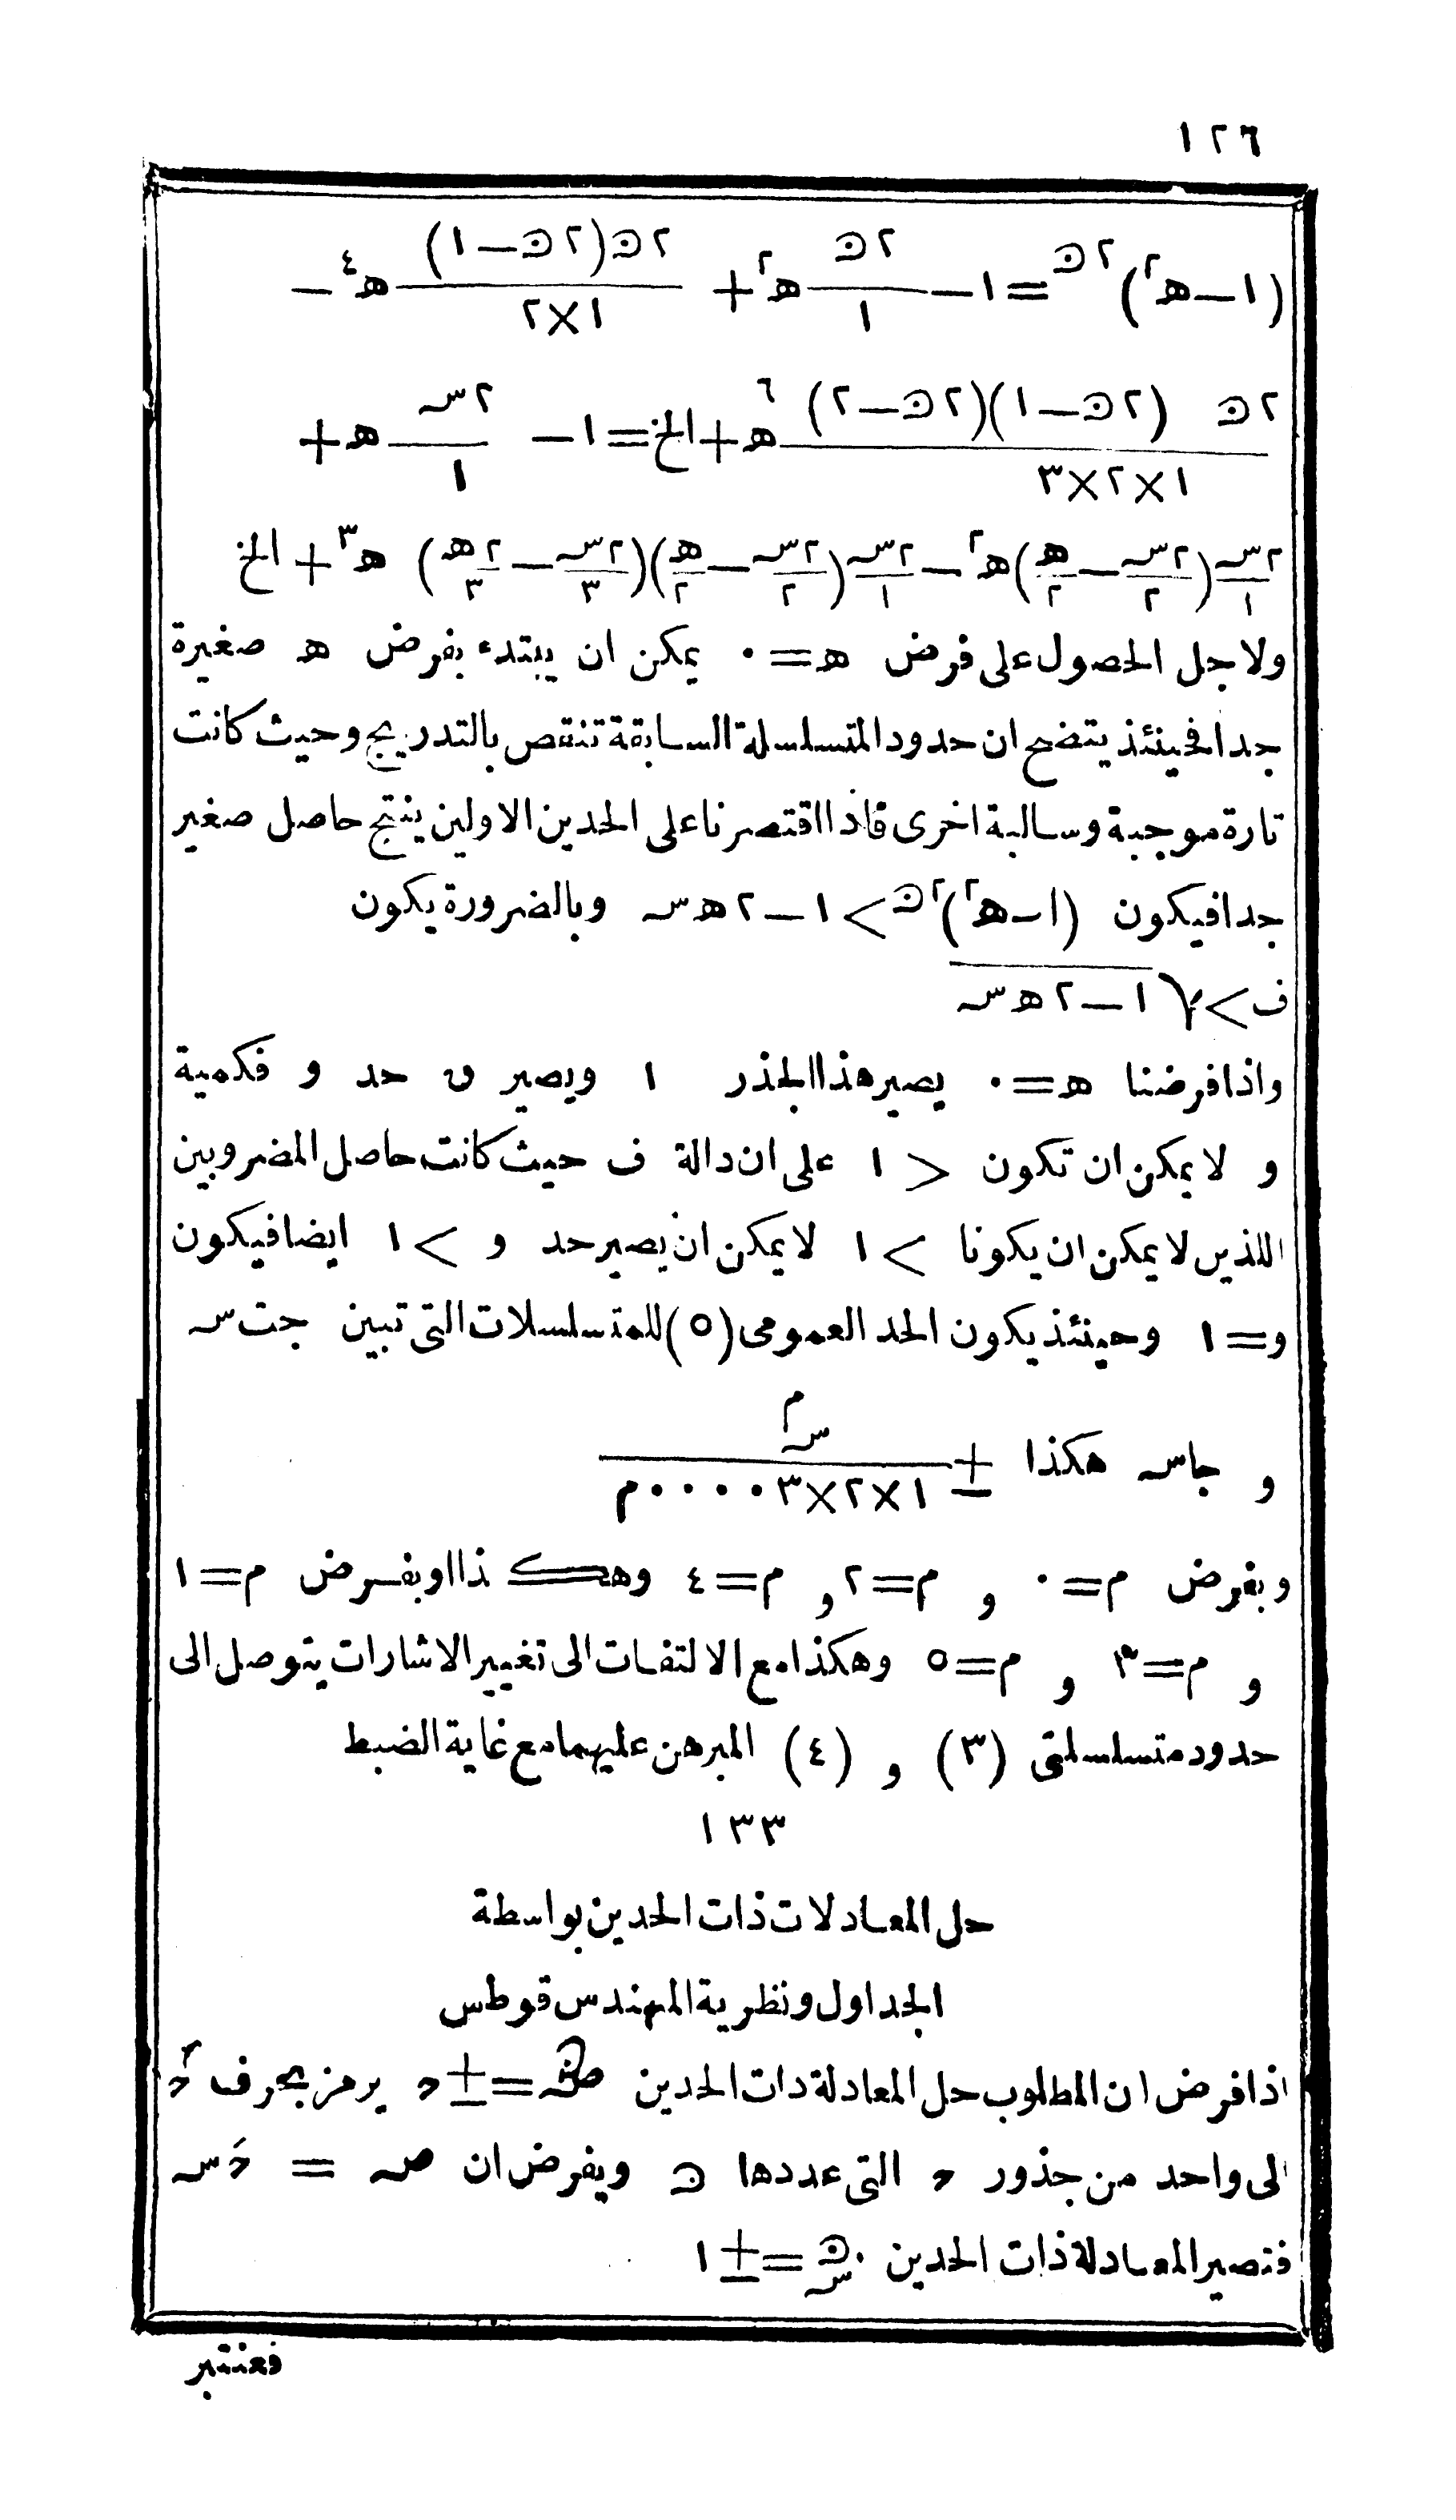 ١٢٦
(١−ه٢)٢ن=١−٢ن/١ ه٢+٢ن(٢ن−١)/١×٢ ه٤−
٢ن (٢ن−١)(٢ن−٢)/١×٢×٣ ه٦+الخ=١−٢س/١ ه+
٢س/١(٢س/٢−ه/٢)ه٢−٢س/١(٢س/٢−ه/٢)(٢س/٣−٢ه/٣) ه٣+الخ
ولاجل الحصول على فرض ه=٠ يمكن ان يبتدء بفرض ه صغيرة
جدا فحينئذ يتضح ان حدود المتسلسلة السابقة تنقص بالتدريج وحيث كانت
تارة موجبة وسالبة اخرى فاذا اقتصرنا على الحدين الاولين ينتج حاصل صغير
جدا فيكون (١−ه٢)٢ن>١−٢ه س وبالضرورة يكون
ف>√١−٢ه س
واذا فرضنا ه=٠ يصير هذا الجذر ١ ويصير ف حد و فكمية
و لا يمكن ان تكون < ١ على ان دالة ف حيث كانت حاصل المضروبين
اللذين لا يمكن ان يكونا > ١ لا يمكن ان يصير حد و > ١ ايضا فيكون
و=١ وحينئذ يكون الحد العمومى (٥) للمتسلسلات التى تبين جت س
و جاس هكذا ± س م/١×٢×٣٠٠٠٠م
وبفرض م=٠ و م=٢ و م=٤ وهكذا او بفرض م=١
و م=٣ و م=٥ وهكذا مع الالتفات الى تغيير الاشارات يتوصل الى
حدود متسلسلتى (٣) و (٤) المبرهن عليهما مع غاية الضبط
١٣٣
حل المعادلات ذات الحدين بواسطة
الجداول ونظرية المهندس قوطس
اذا فرض ان المطلوب حل المعادلة ذات الحدين صن=±د يرمز بحرف دَ
الى واحد من جذور د التى عددها ن ويفرض ان ص = دَس
فتصير المعادلة ذات الحدين سن=±١
فعنتبر